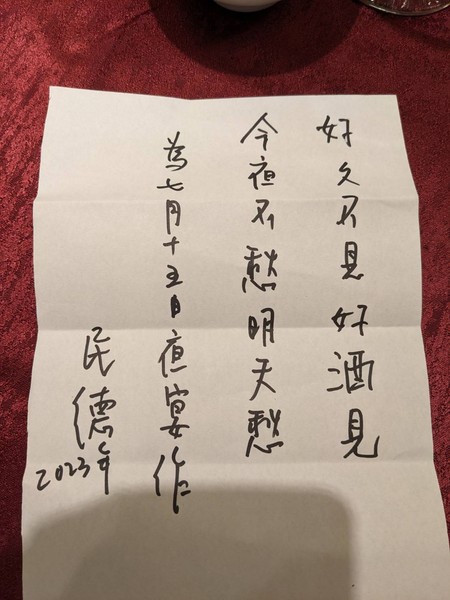 好久不見好酒見
今夜不愁明天愁
為七月十五日夜宴作
民德
2023年